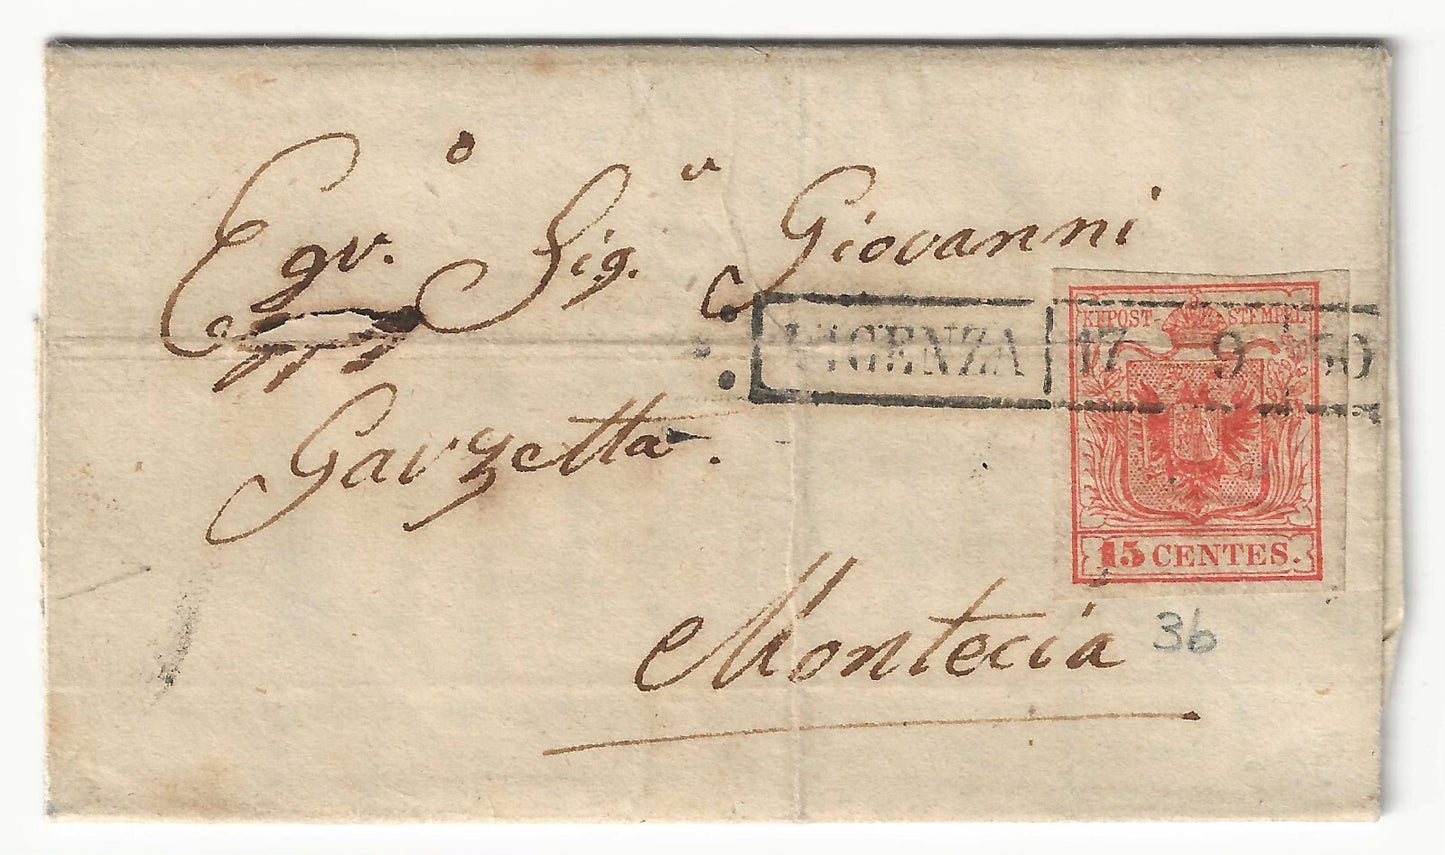 Egv.o Sig.r Giovanni
VICENZA 17 9 50
KKPOST-STEMPEL
Garzetta.
15 CENTES.
Montecia 36